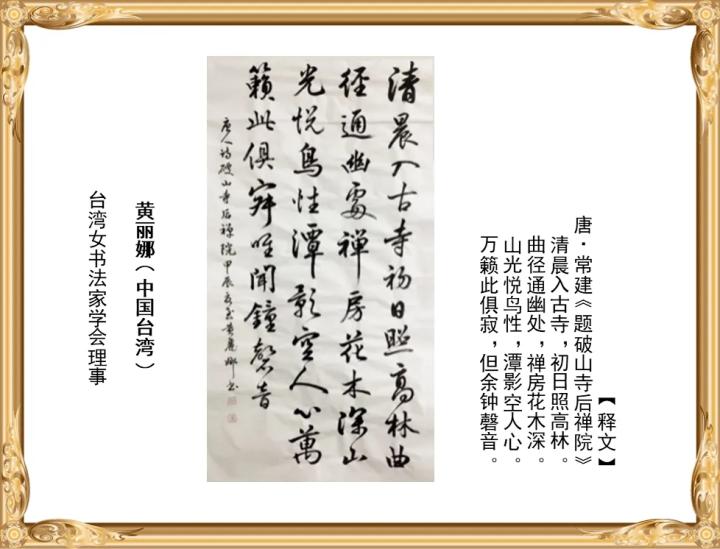 【释文】
唐·常建《题破山寺后禅院》
清晨入古寺，初日照高林。
曲径通幽处，禅房花木深。
山光悦鸟性，潭影空人心。
万籁此俱寂，但余钟磬音。
清晨入古寺初日照高林曲
徑通幽處禅房花木深山
光悦鳥性潭影空人心萬
籟此俱寂唯聞鐘磬音
唐人诗破山寺后禅院甲辰黄麗娜书
黄丽娜（中国台湾）
台湾女书法家学会理事